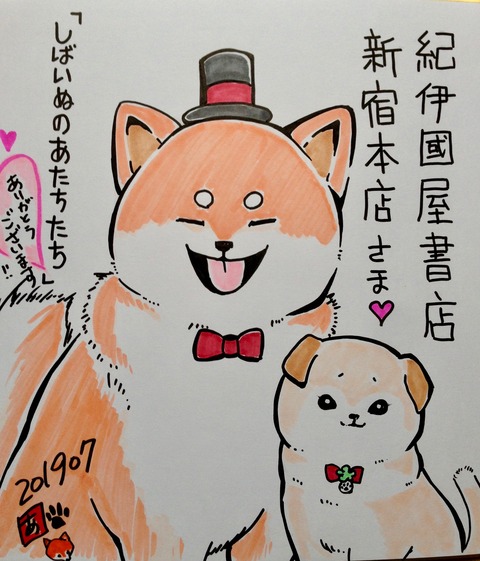 紀伊國屋書店
新宿本店さま♥
「しばいぬのあたちたち」
ありがとう
ございます!!
201907
あ